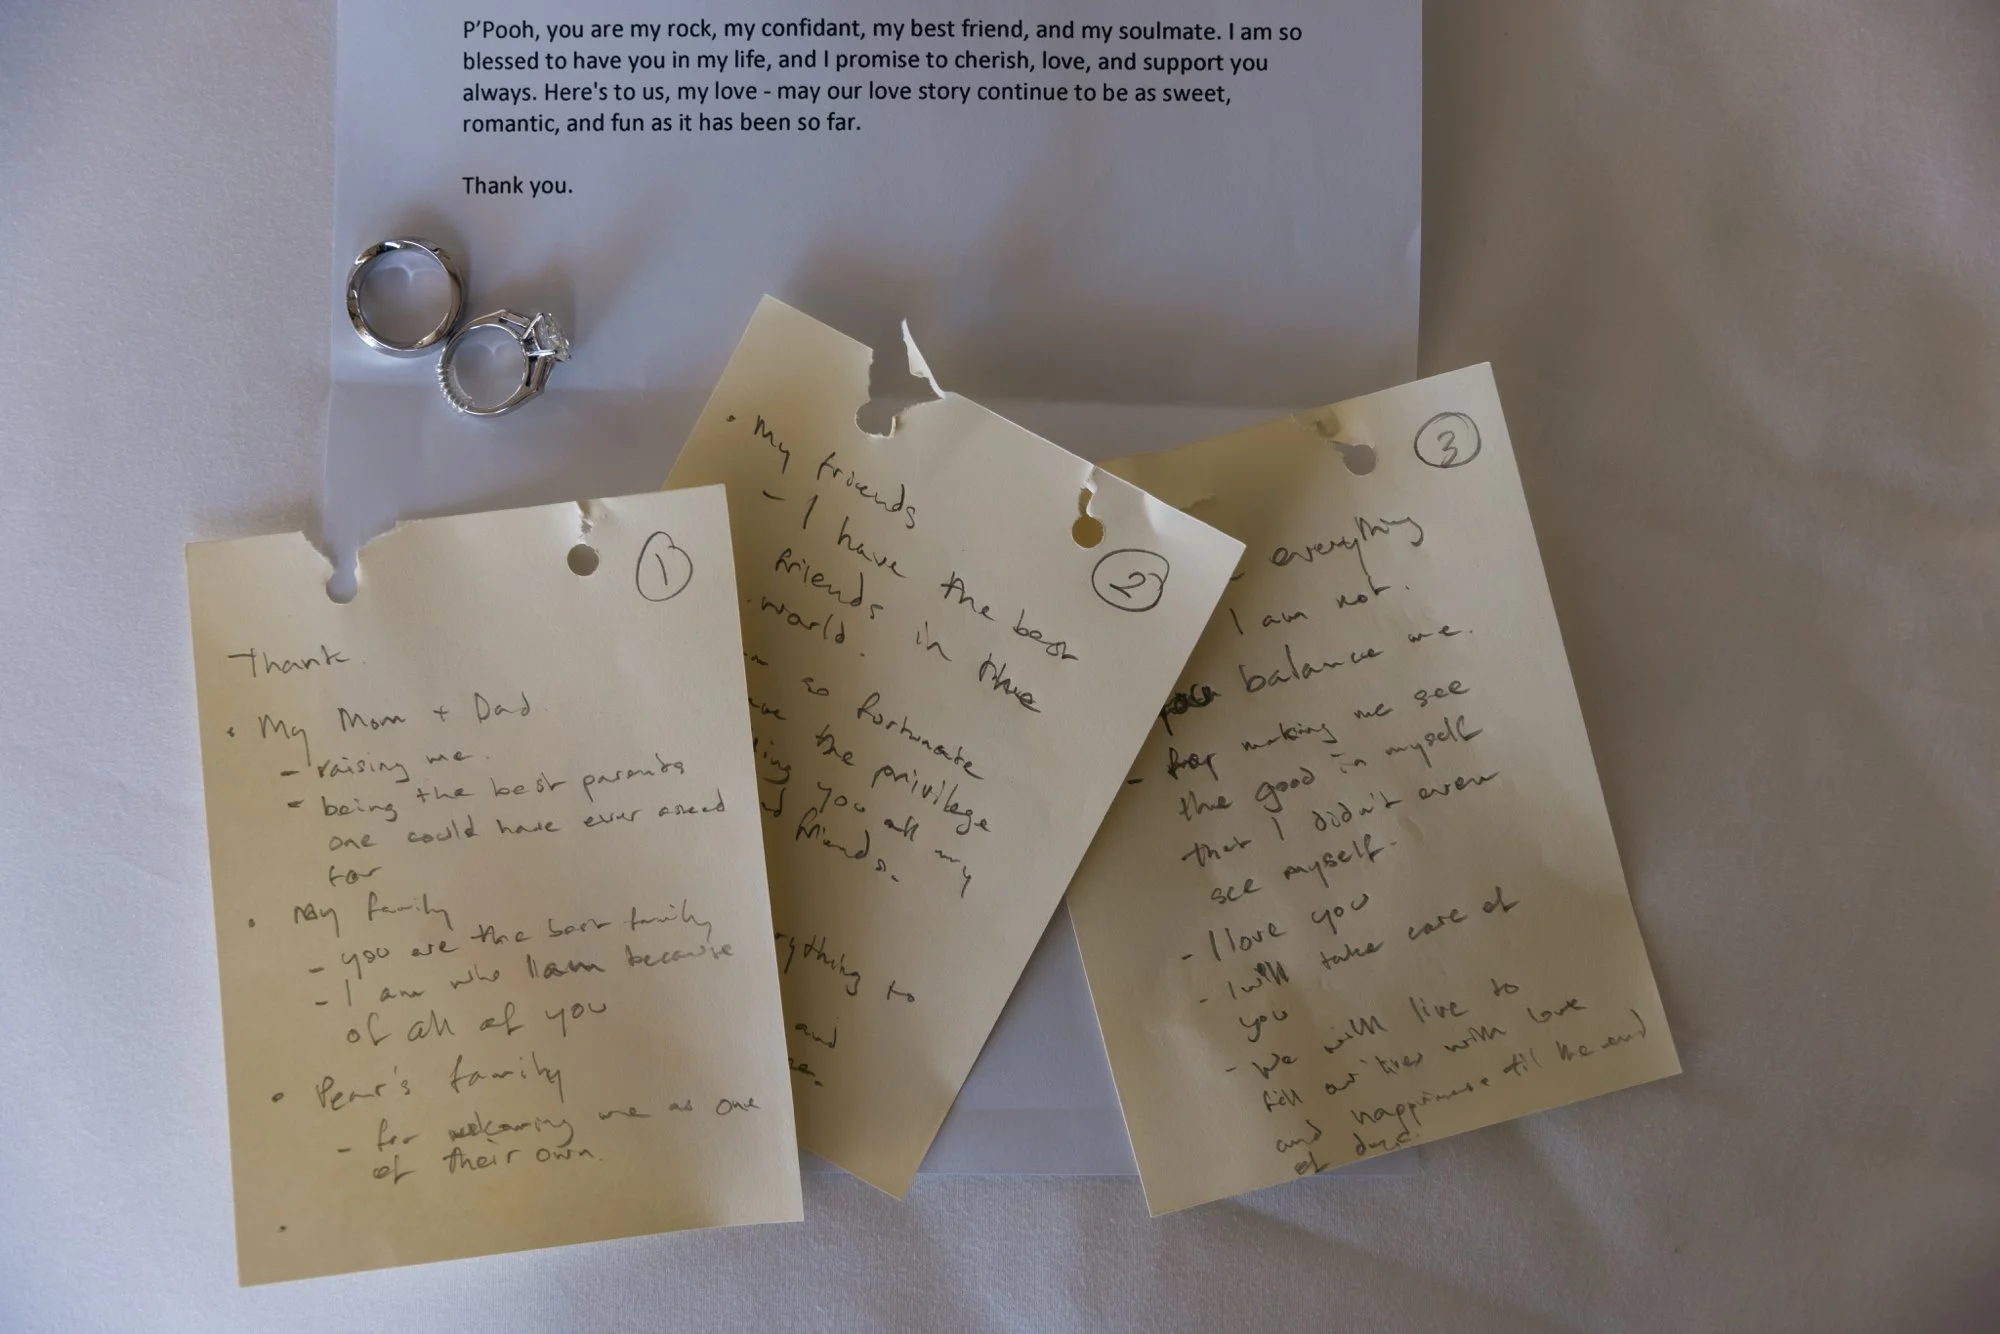 P'Pooh, you are my rock, my confidant, my best friend, and my soulmate. I am so
blessed to have you in my life, and I promise to cherish, love, and support you
always. Here's to us, my love - may our love story continue to be as sweet,
romantic, and fun as it has been so far.
Thank you.
1
Thank.
• My Mom + Dad
- raising me.
- being the best parents
one could have ever asked
for
• My family
- you are the best family
- I am who I am because
of all of you
• Pear's family
- for welcoming me as one
of their own.
•
2
• My friends
- I have the best
friends in the
world.
so fortunate
the privilege
you all my
friends.
to
and
3
- everything
I am not.
you balance me.
- for making me see
the good in myself
that I didn't even
see myself.
- I love you
- I will take care of
you
- We will live to
fill our lives with love
and happiness til the end
of days.